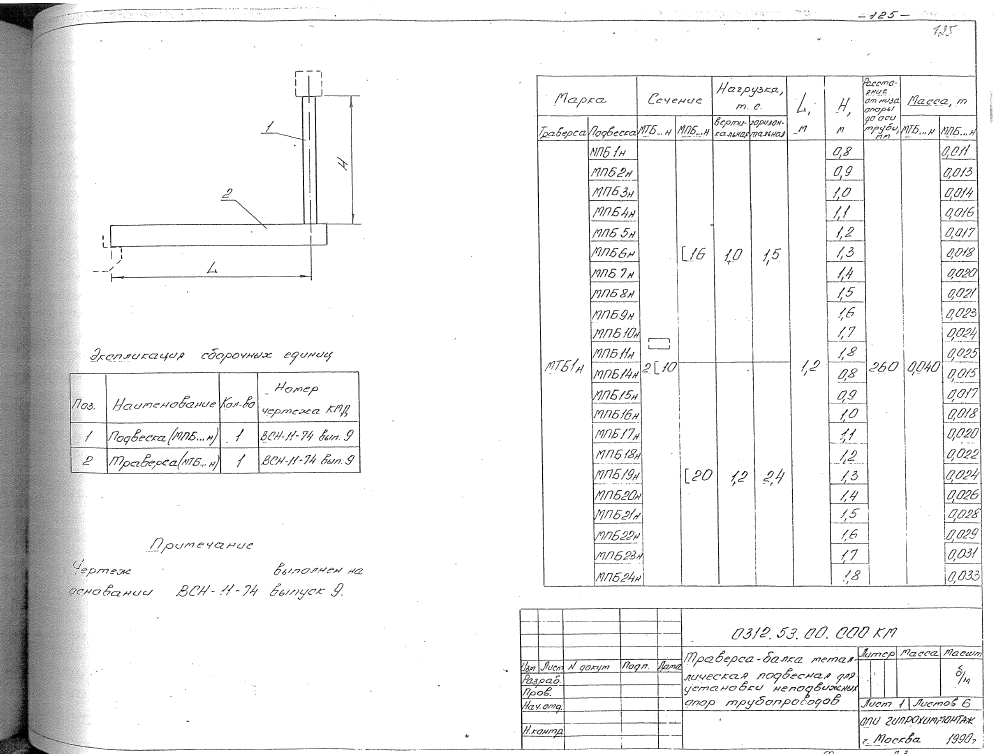 - 125 -
125
1
2
H
L
Экспликация сборочных единиц
Поз. Наименование Кол-во Номер чертежа КМД
1 Подвеска (МПБ...н) 1 ВСН-11-74 вып. 9
2 Траверса (МТБ...н) 1 ВСН-11-74 вып. 9
Примечание
Чертеж выполнен на
основании ВСН-11-74 выпуск 9.
Марка Сечение Нагрузка, т.с. L, м H, м Расстояние от низа опоры до оси трубы, мм Масса, т
Траверса Подвеска МТБ...н МПБ...н вертикальная горизонтальная МТБ...н МПБ...н
МПБ1н 0,8 0,011
МПБ2н 0,9 0,013
МПБ3н 1,0 0,014
МПБ4н 1,1 0,016
МПБ5н 1,2 0,017
МПБ6н [16 1,0 1,5 1,3 0,018
МПБ7н 1,4 0,020
МПБ8н 1,5 0,021
МПБ9н 1,6 0,023
МПБ10н 1,7 0,024
МПБ11н 1,8 0,025
МТБ1н МПБ14н 2[10 1,2 0,8 260 0,040 0,015
МПБ15н 0,9 0,017
МПБ16н 1,0 0,018
МПБ17н 1,1 0,020
МПБ18н 1,2 0,022
МПБ19н [20 1,2 2,4 1,3 0,024
МПБ20н 1,4 0,026
МПБ21н 1,5 0,028
МПБ22н 1,6 0,029
МПБ23н 1,7 0,031
МПБ24н 1,8 0,033
0312.53.00.000 КМ
Изм Лист N докум Подп. Дата
Разраб.
Пров.
Нач.отд.
Н.контр
Траверса-балка метал-
лическая подвесная для
установки неподвижных
опор трубопроводов
Литер Масса Масшт
б/м
Лист 1 Листов 6
ОПИ ГИПРОХИММОНТАЖ
г. Москва 1990г